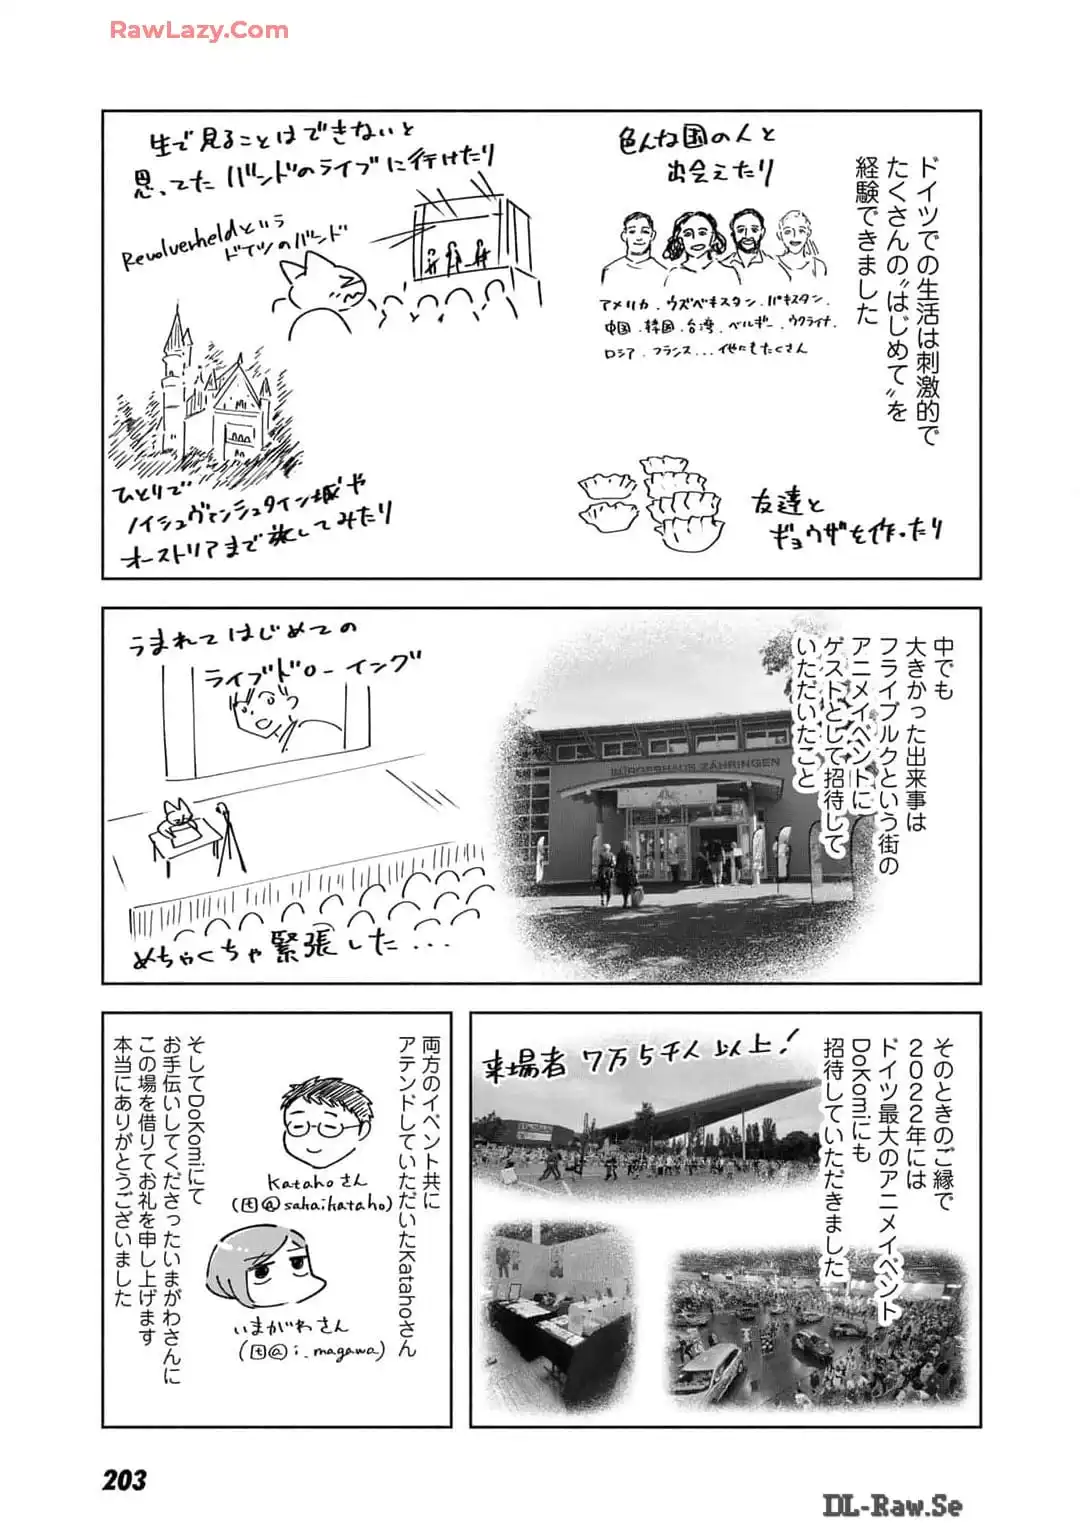 RawLazy.Com
ドイツでの生活は刺激的で
たくさんの〝はじめて〟を
経験できました
色んな国の人と
出会えたり
アメリカ、ウズベキスタン、パキスタン、
中国、韓国、台湾、ベルギー、ウクライナ、
ロシア、フランス...他にもたくさん
生で見ることはできないと
思ってたバンドのライブに行けたり
Revolverheldという
ドイツのバンド
友達と
ギョウザを作ったり
ひとりで
ノイシュヴァンシュタイン城や
オーストリアまで旅してみたり
中でも
大きかった出来事は
フライブルクという街の
アニメイベントに
ゲストとして招待して
いただいたこと
BÜRGERHAUS ZÄHRINGEN
うまれてはじめての
ライブドローイング
めちゃくちゃ緊張した...
そのときのご縁で
2022年には
ドイツ最大のアニメイベント
DoKomiにも
招待していただきました
来場者 7万5千人以上!
両方のイベント共に
アテンドしていただいたKatahoさん
Katahoさん
(t@sakaikataho)
いまがわさん
(t@i_magawa)
そしてDoKomiにて
お手伝いしてくださったいまがわさんに
この場を借りてお礼を申し上げます
本当にありがとうございました
203
DL-Raw.Se